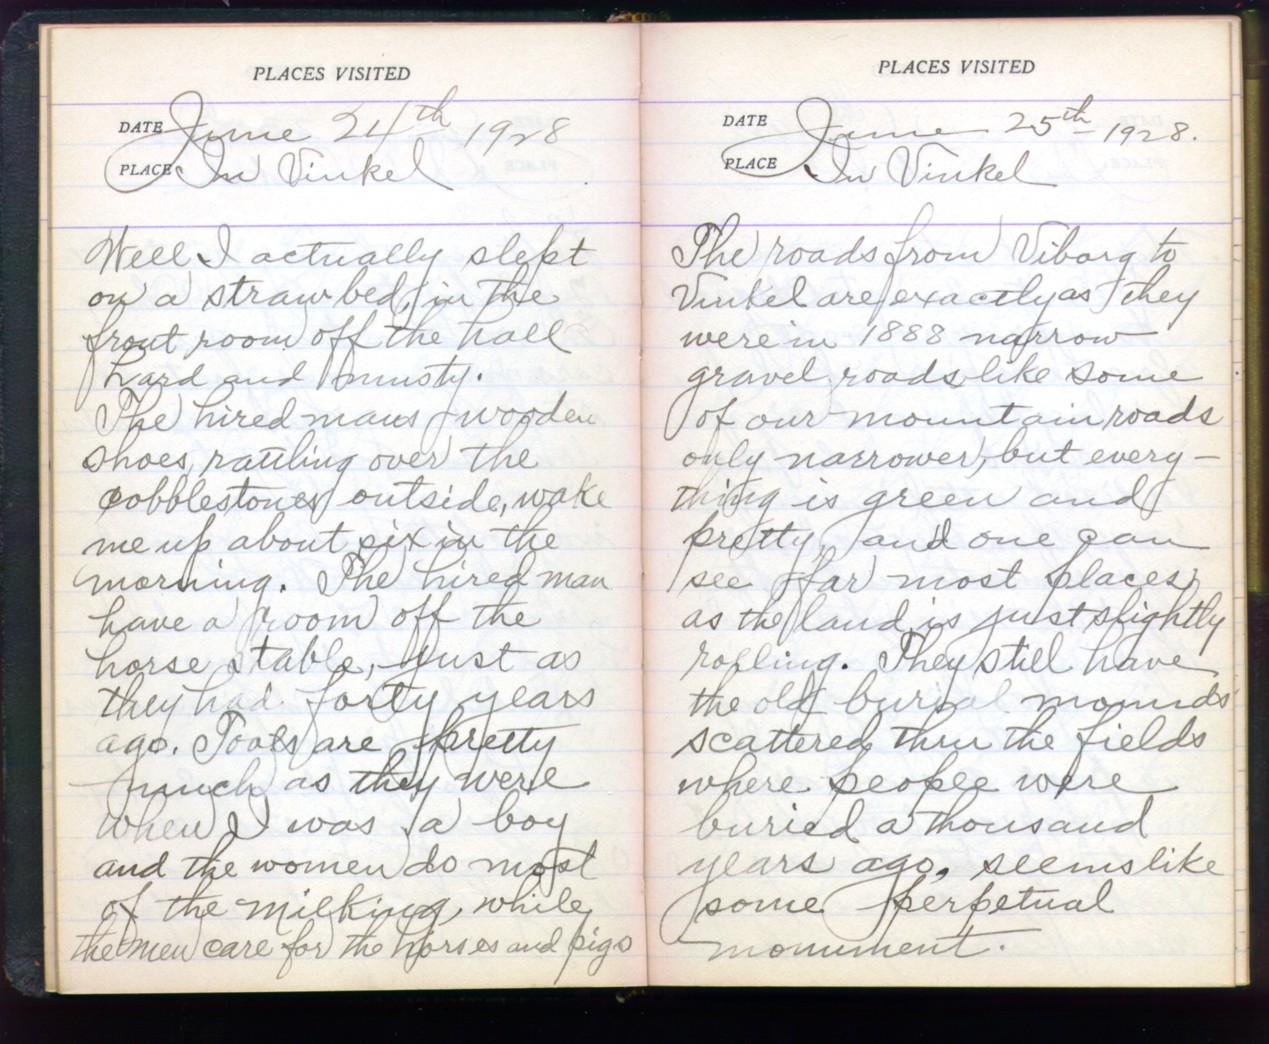 PLACES VISITED
DATE June 24th 1928
PLACE In Vinkel
Well I actually slept
on a straw bed, in the
front room off the hall
hard and musty.
The hired mans wooden
shoes, rattling over the
cobblestones outside, wake
me up about six in the
morning. The hired man
have a room off the
horse stable, just as
they had forty years
ago. Tools are pretty
much as they were
when I was a boy
and the women do most
of the milking, while
the men care for the horses and pigs
PLACES VISITED
DATE June 25th 1928.
PLACE In Vinkel
The roads from Viborg to
Vinkel are exactly as they
were in 1888 narrow
gravel roads like some
of our mountain roads
only narrower, but every-
thing is green and
pretty, and one can
see far most places,
as the land is just slightly
rolling. They still have
the old burial mounds
scattered thru the fields
where people were
buried a thousand
years ago, seems like
some perpetual
monument.